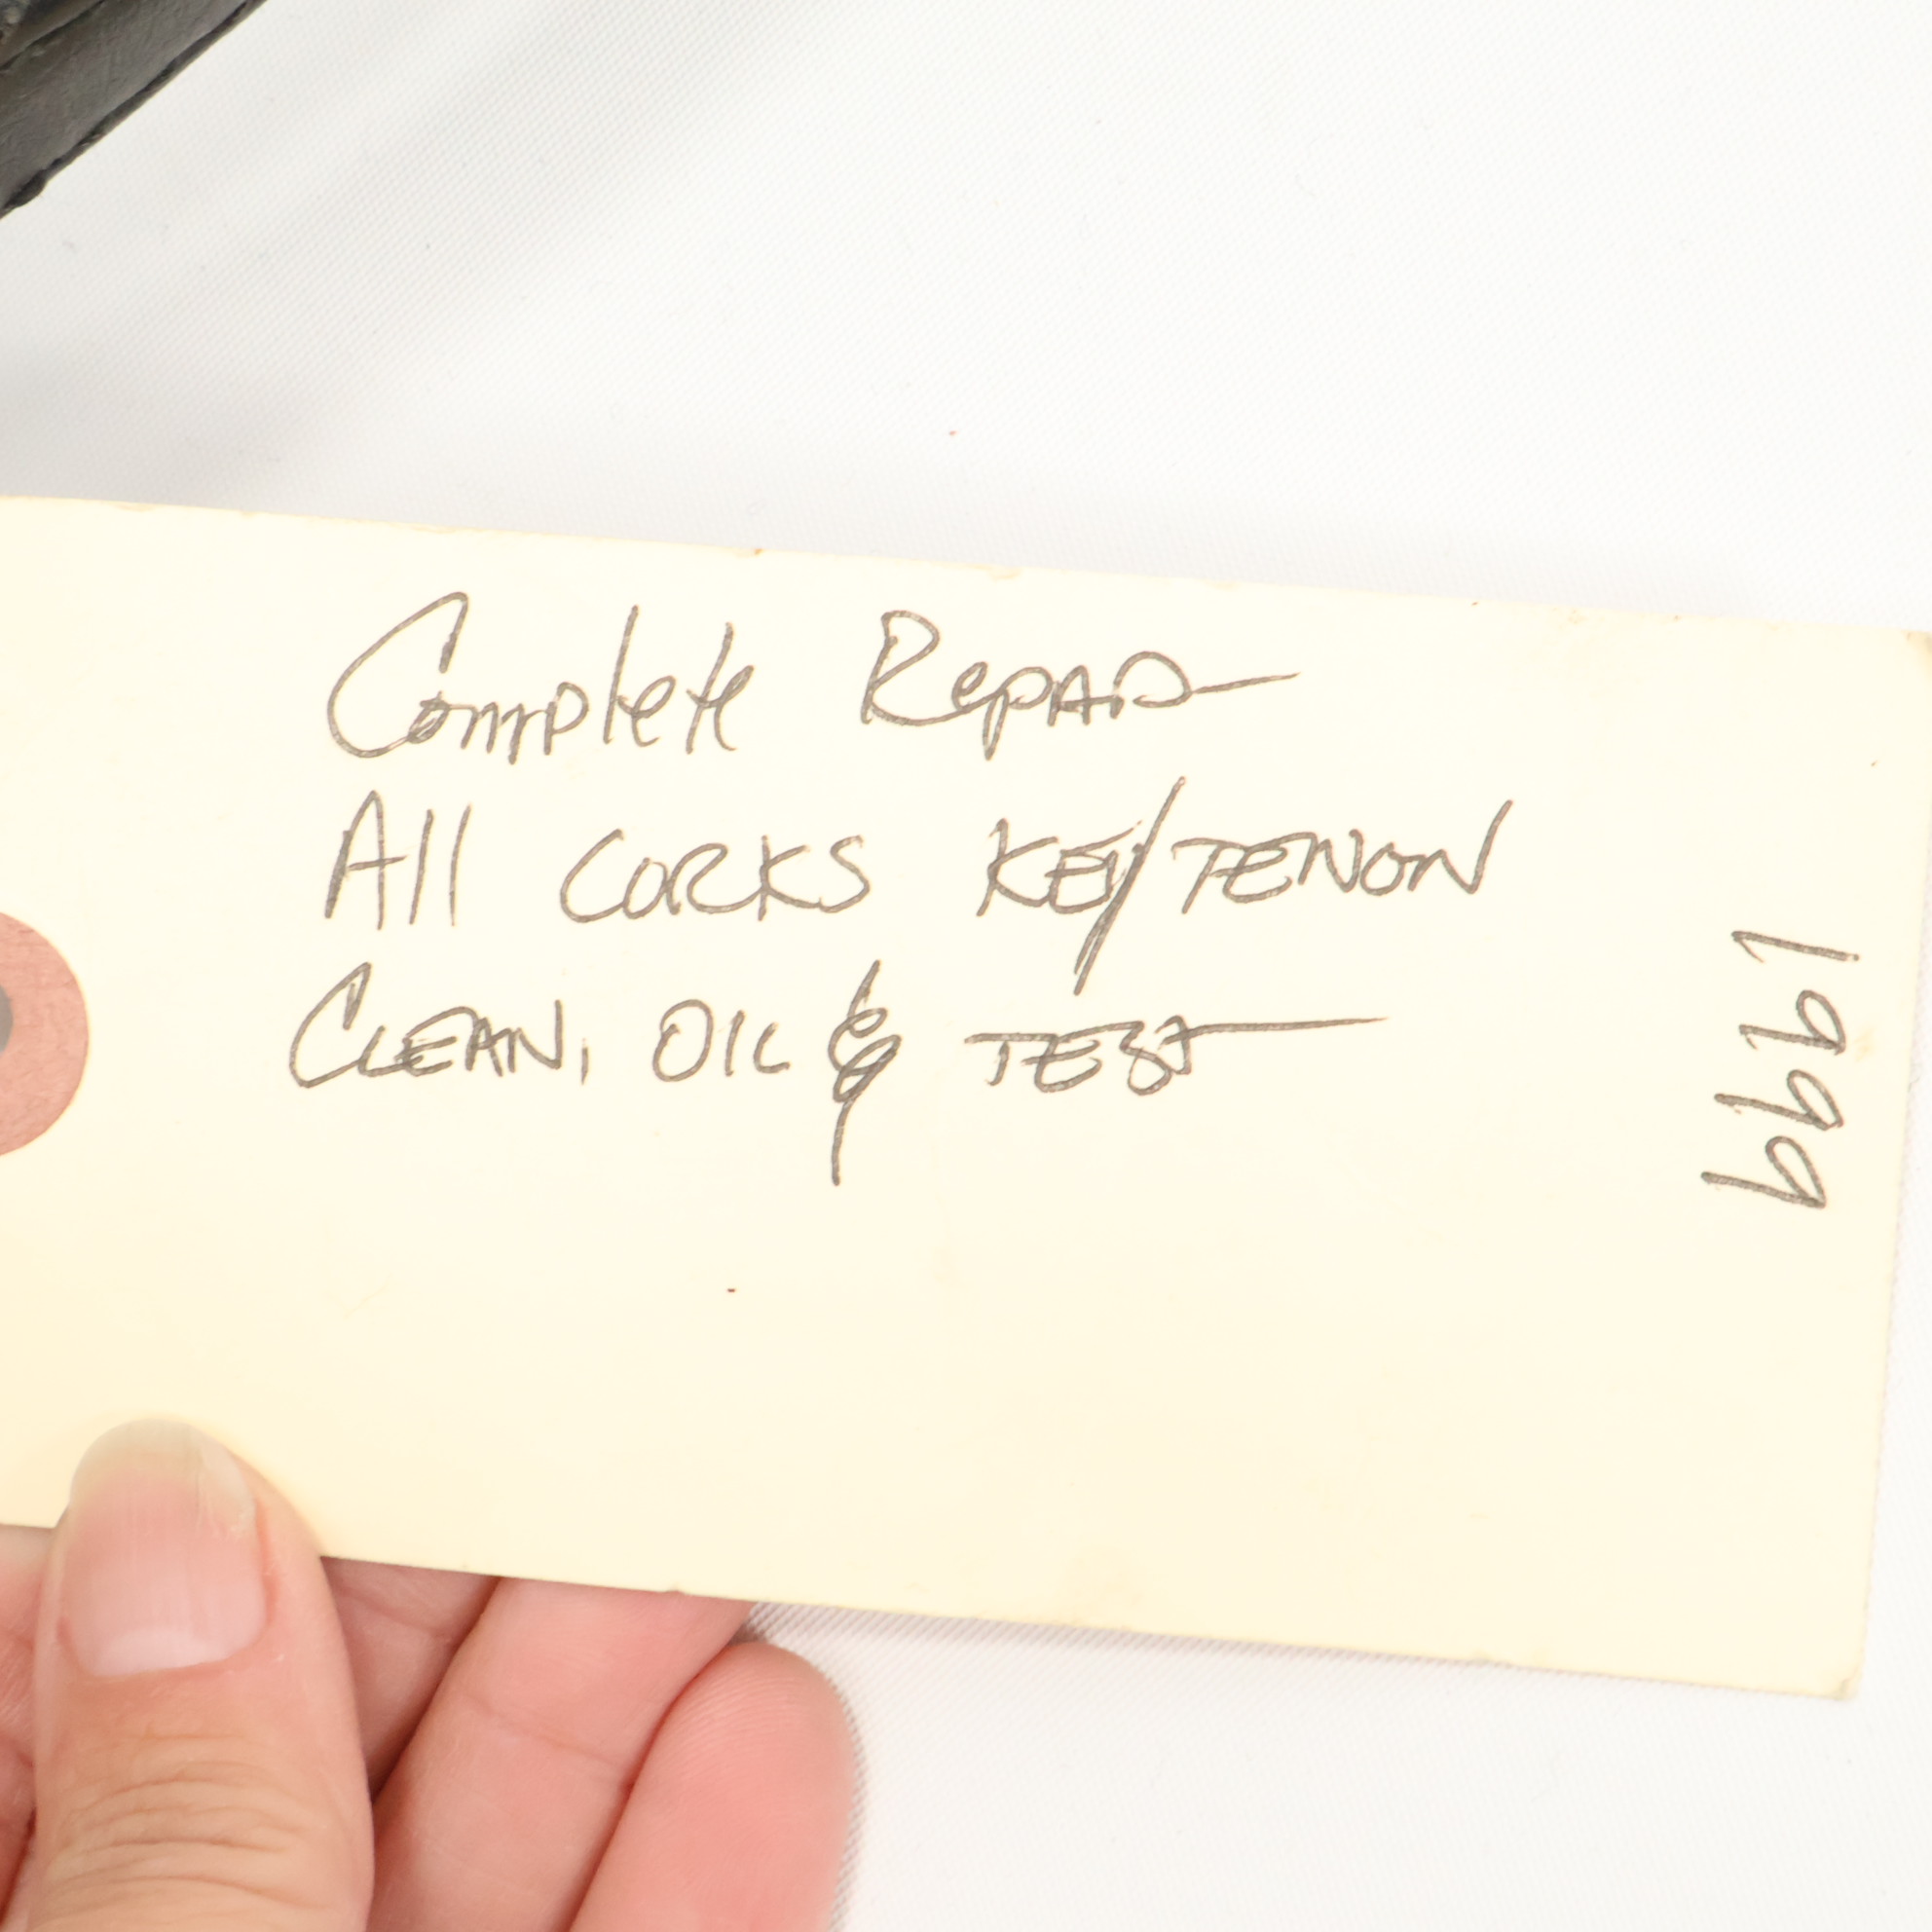 Complete Repair
All CORKS KEY/TENON
CLEAN, OIL & TEST
1999